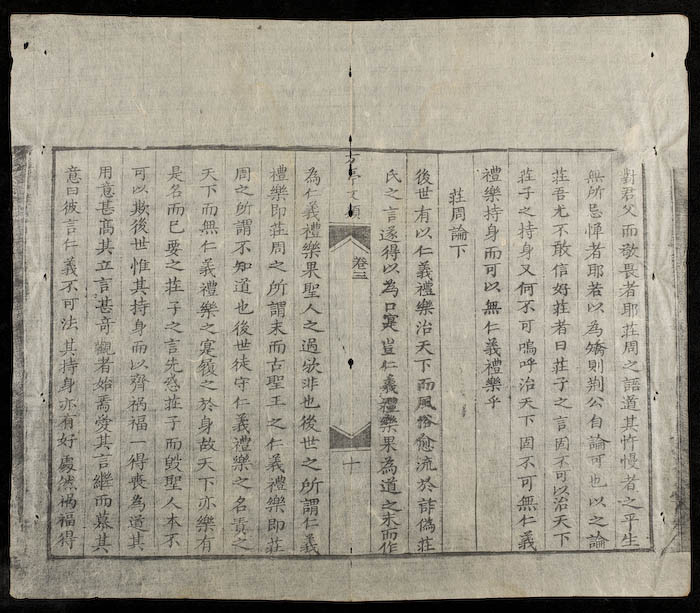 對君父而敬畏者耶莊周之語道其忤慢者之平生
無所忌憚者耶若以為矯則荆公自論可也以之論
莊吾尤不敢信好莊者曰莊子之言固不可以治天下
莊子之持身又何不可嗚呼治天下固不可無仁義
禮樂持身而可以無仁義禮樂乎
莊周論下
後世有以仁義禮樂治天下而風俗愈流於詐偽莊
氏之言遂得以為口寔豈仁義禮樂果為道之末而作
方亭文類
卷三
十
為仁義禮樂果聖人之過欤非也後世之所謂仁義
禮樂即莊周之所謂末而古聖王之仁義禮樂即莊
周之所謂不知道也後世徒守仁義禮樂之名責之
天下而無仁義禮樂之寔之於身故天下亦樂有
是名而已要之莊子之言先惑莊子而毀聖人本不
可以欺後世惟其持身而以齊禍福一得喪為道其
用意甚高其立言甚奇觀者始焉愛其言繼而慕其
意曰彼言仁義不可法其持身亦有好處然禍福得